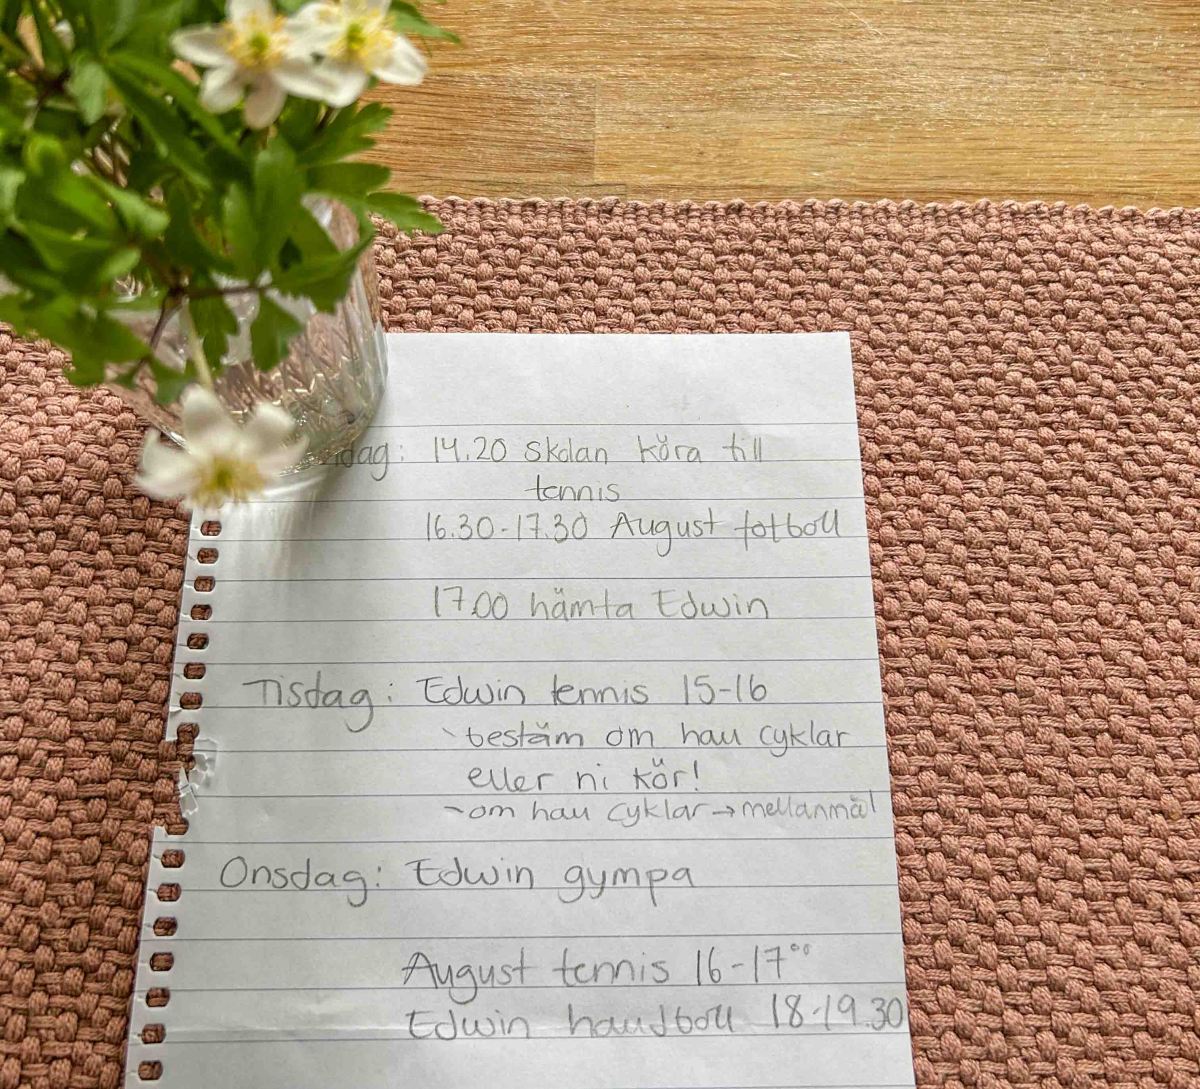 dag: 14.20 skolan köra till
tennis
16.30-17.30 August fotboll
17.00 hämta Edwin
Tisdag: Edwin tennis 15-16
- bestäm om han cyklar
eller ni kör!
- om han cyklar → mellanmål
Onsdag: Edwin gympa
August tennis 16-17⁰⁰
Edwin handboll 18-19.30